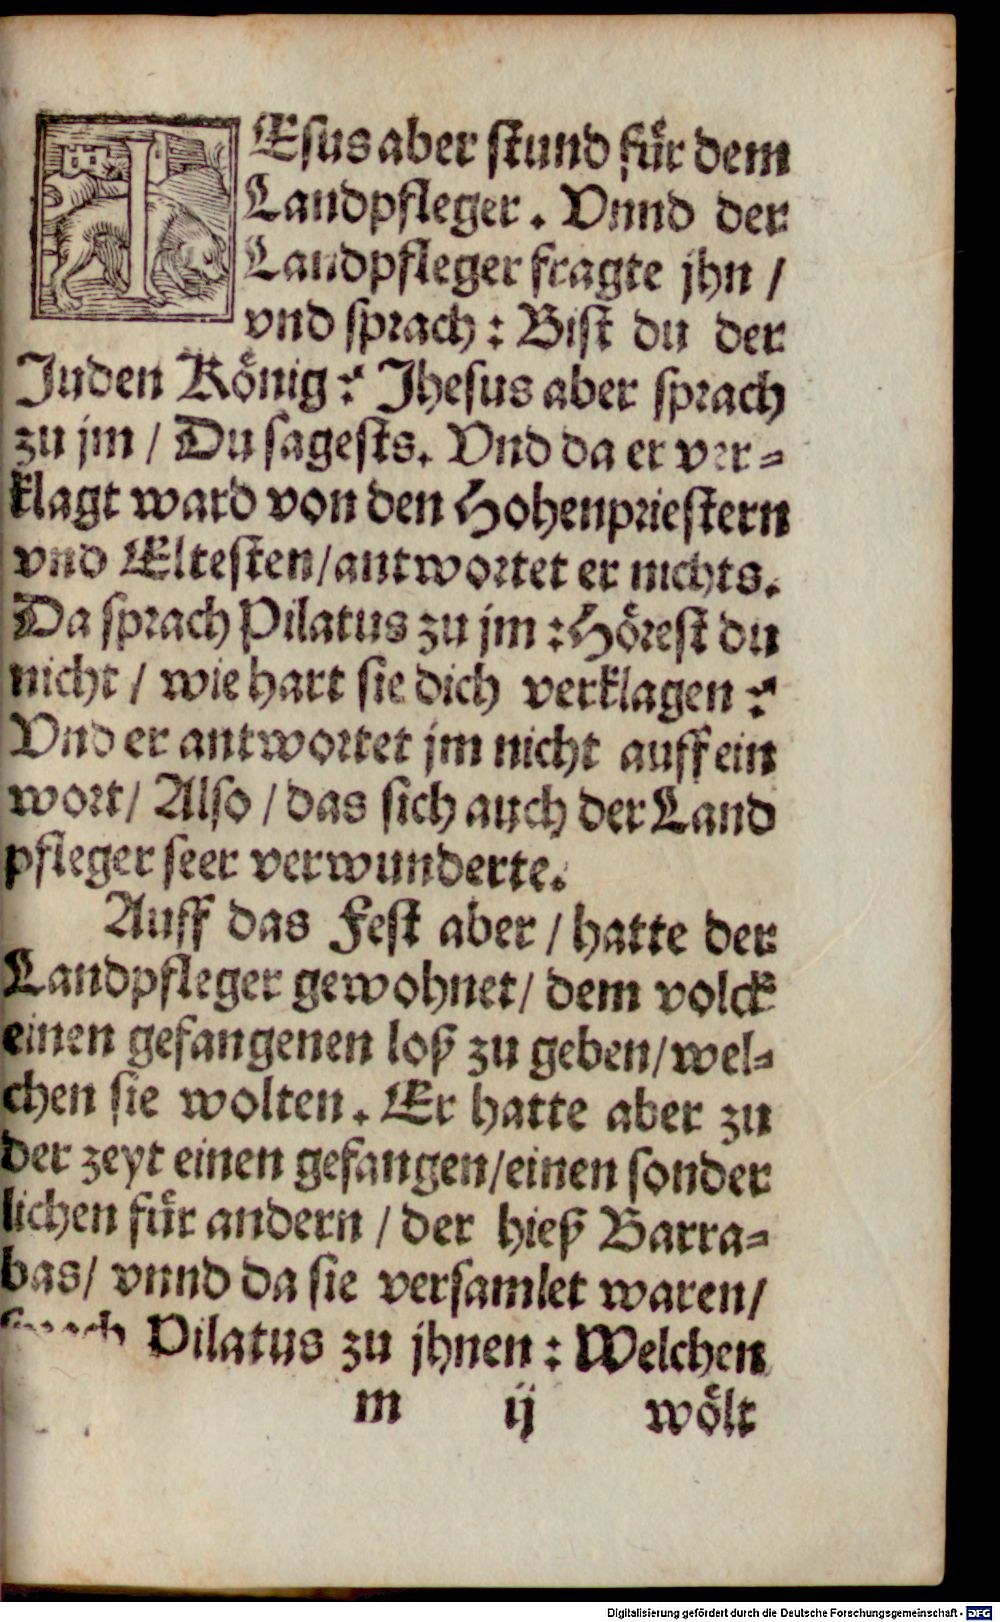 JEsus aber stund fuͤr dem
Landpfleger. Vnnd der
Landpfleger fragte jhn /
vnd sprach : Bist du der
Juden Koͤnig? Jhesus aber sprach
zu jm / Du sagests. Vnd da er ver-
klagt ward von den Hohenpriestern
vnd Eltesten / antwortet er nichts.
Da sprach Pilatus zu jm : Hoͤrest du
nicht / wie hart sie dich verklagen?
Vnd er antwortet jm nicht auff ein
wort / Also / das sich auch der Land
pfleger seer verwunderte.
Auff das Fest aber / hatte der
Landpfleger gewohnet / dem volck
einen gefangenen loß zu geben / wel-
chen sie wolten. Er hatte aber zu
der zeyt einen gefangen / einen sonder
lichen fuͤr andern / der hieß Barra-
bas / vnnd da sie versamlet waren /
sprach Pilatus zu jhnen : Welchen
m ij woͤlt
Digitalisierung gefördert durch die Deutsche Forschungsgemeinschaft - DFG